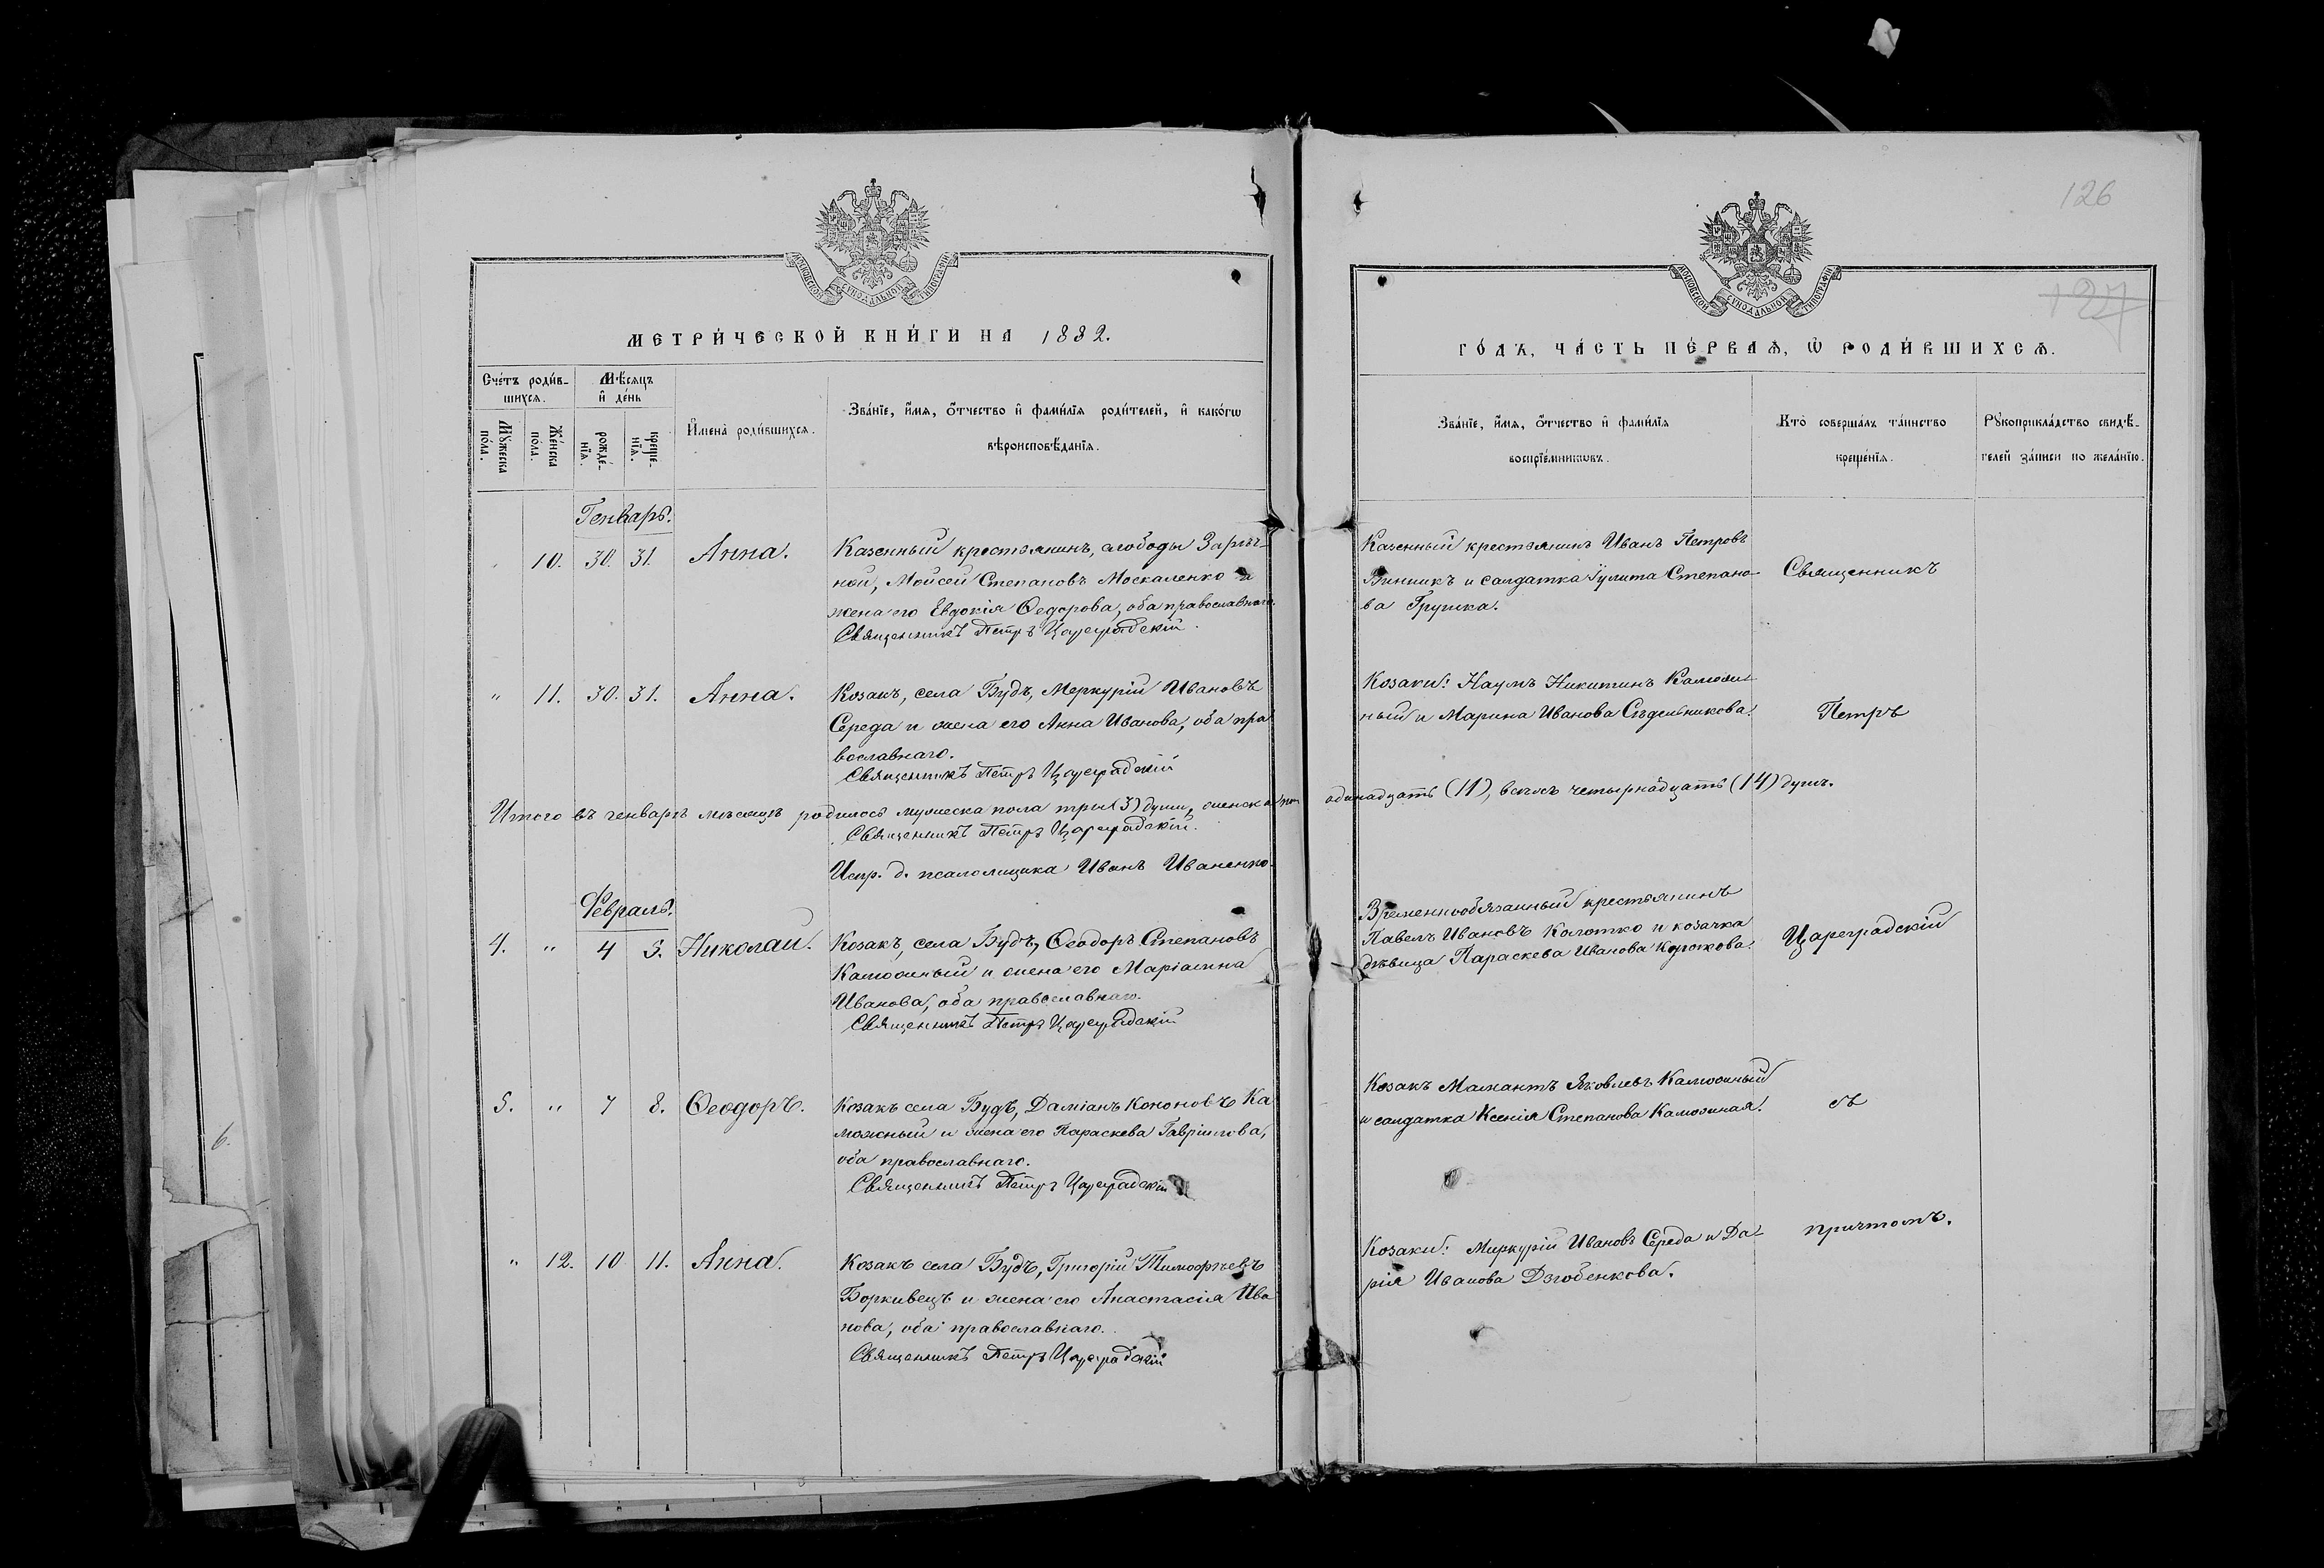 126
127
МОСКОВСКОЙ СѴНОДАЛЬНОЙ ТИПОГРАФІИ
МОСКОВСКОЙ СѴНОДАЛЬНОЙ ТИПОГРАФІИ
МЕТРИ́ЧЕСКОЙ КНИ́ГИ НА 1882.
ГО́ДЪ, ЧА́СТЬ ПЕ́РВАЯ, Ѡ РОДИ́ВШИХСЯ.
Сче́тъ роди́в-
шихся.
Мѣ́сяцъ
и де́нь
Му́жеска
по́ла.
Же́нска
по́ла.
рожде́-
нїя.
креще́-
нїя.
Имена̀ роди́вшихся.
Зва́нїе, и́мя, о́тчество и фами́лїя роди́телей, и како́гѡ
вѣроисповѣ́данїя.
Зва́нїе, и́мя, о́тчество и фами́лїя
воспрїе́мниковъ.
Кто̀ соверша́лъ та́инство
креще́нїя.
Рꙋкоприкла́дство свидѣ́-
телей за́писи по жела́нїю.
Генварь.
10. 30. 31. Анна.
Казенный крестьянинъ, слободы Зарѣч-
ной, Моисей Степановъ Москаленко и
жена его Евдокія Ѳедорова, оба православнаго.
Священникъ Петръ Цареградскій.
Казенный крестьянинъ Иванъ Петровъ
Винникъ и салдатка Іулита Степано-
ва Грушка.
Священникъ
" 11. 30. 31. Анна.
Козакъ, села Будъ, Меркурій Ивановъ
Середа и жена его Анна Иванова, оба пра
вославнаго.
Священникъ Петръ Цареградскій
Козаки: Наумъ Никитинъ Камож-
ный и Марина Иванова Сѣдельникова.
Петръ
Итого въ генварѣ мѣсяцѣ родилось мужеска пола три (3) души, женска одинадцать (11), всего четырнадцать (14) душъ.
Священникъ Петръ Цареградскій.
Испр. д. псаломщика Иванъ Иваненко.
Февраль.
4. " 4 5. Николай.
Козакъ, села Будъ, Ѳеодоръ Степановъ
Каможный и жена его Маріамна
Иванова, оба православнаго.
Священникъ Петръ Цареградскій
Временнообязанный крестьянинъ
Павелъ Ивановъ Колотко и козачка
дѣвица Параскева Иванова
Цареградскій
5. " 7 8. Ѳеодоръ.
Козакъ села Будъ, Даміанъ Кононовъ Ка
можный и жена его Параскева Гавріилова,
оба православнаго.
Священникъ Петръ Цареградскій
Козакъ Мамантъ Яковлевъ Каможный
и салдатка Ксенія Степанова Каможная.
съ
" 12. 10 11. Анна.
Козакъ села Будъ, Григорій Тимофѣевъ
Боркивецъ и жена его Анастасія Ива
нова, оба православнаго.
Священникъ Петръ Цареградскій
Козаки: Меркурій Ивановъ Середа и Да-
рія Иванова Дзюбенкова.
причтомъ.
6.